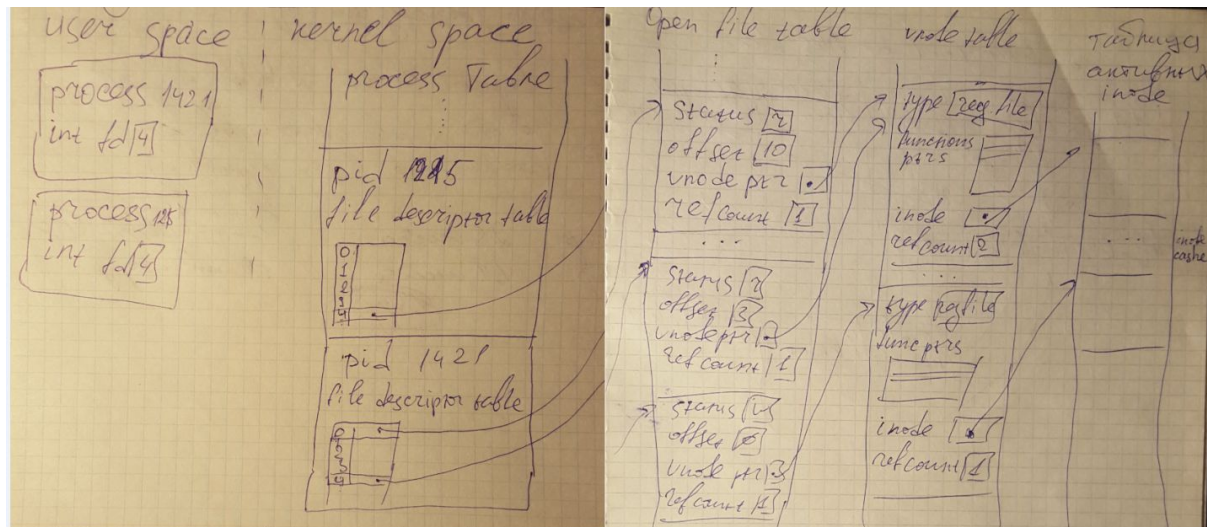 user space
kernel space
process 1421
int fd 4
process 125
int fd 4
process Table
pid 1225
file descriptor table
0
1
2
3
4
pid 1421
file descriptor table
0
3
4
Open file table
status r
offset 10
vnode ptr
ref count 1
...
status r
offset 3
vnode ptr
ref count 1
status
offset
vnode ptr
ref count 1
vnode table
type reg file
functions
ptrs
inode
ref count 2
...
type reg file
func ptrs
inode
ref count 1
таблица
активных
inode
...
inode
cashe